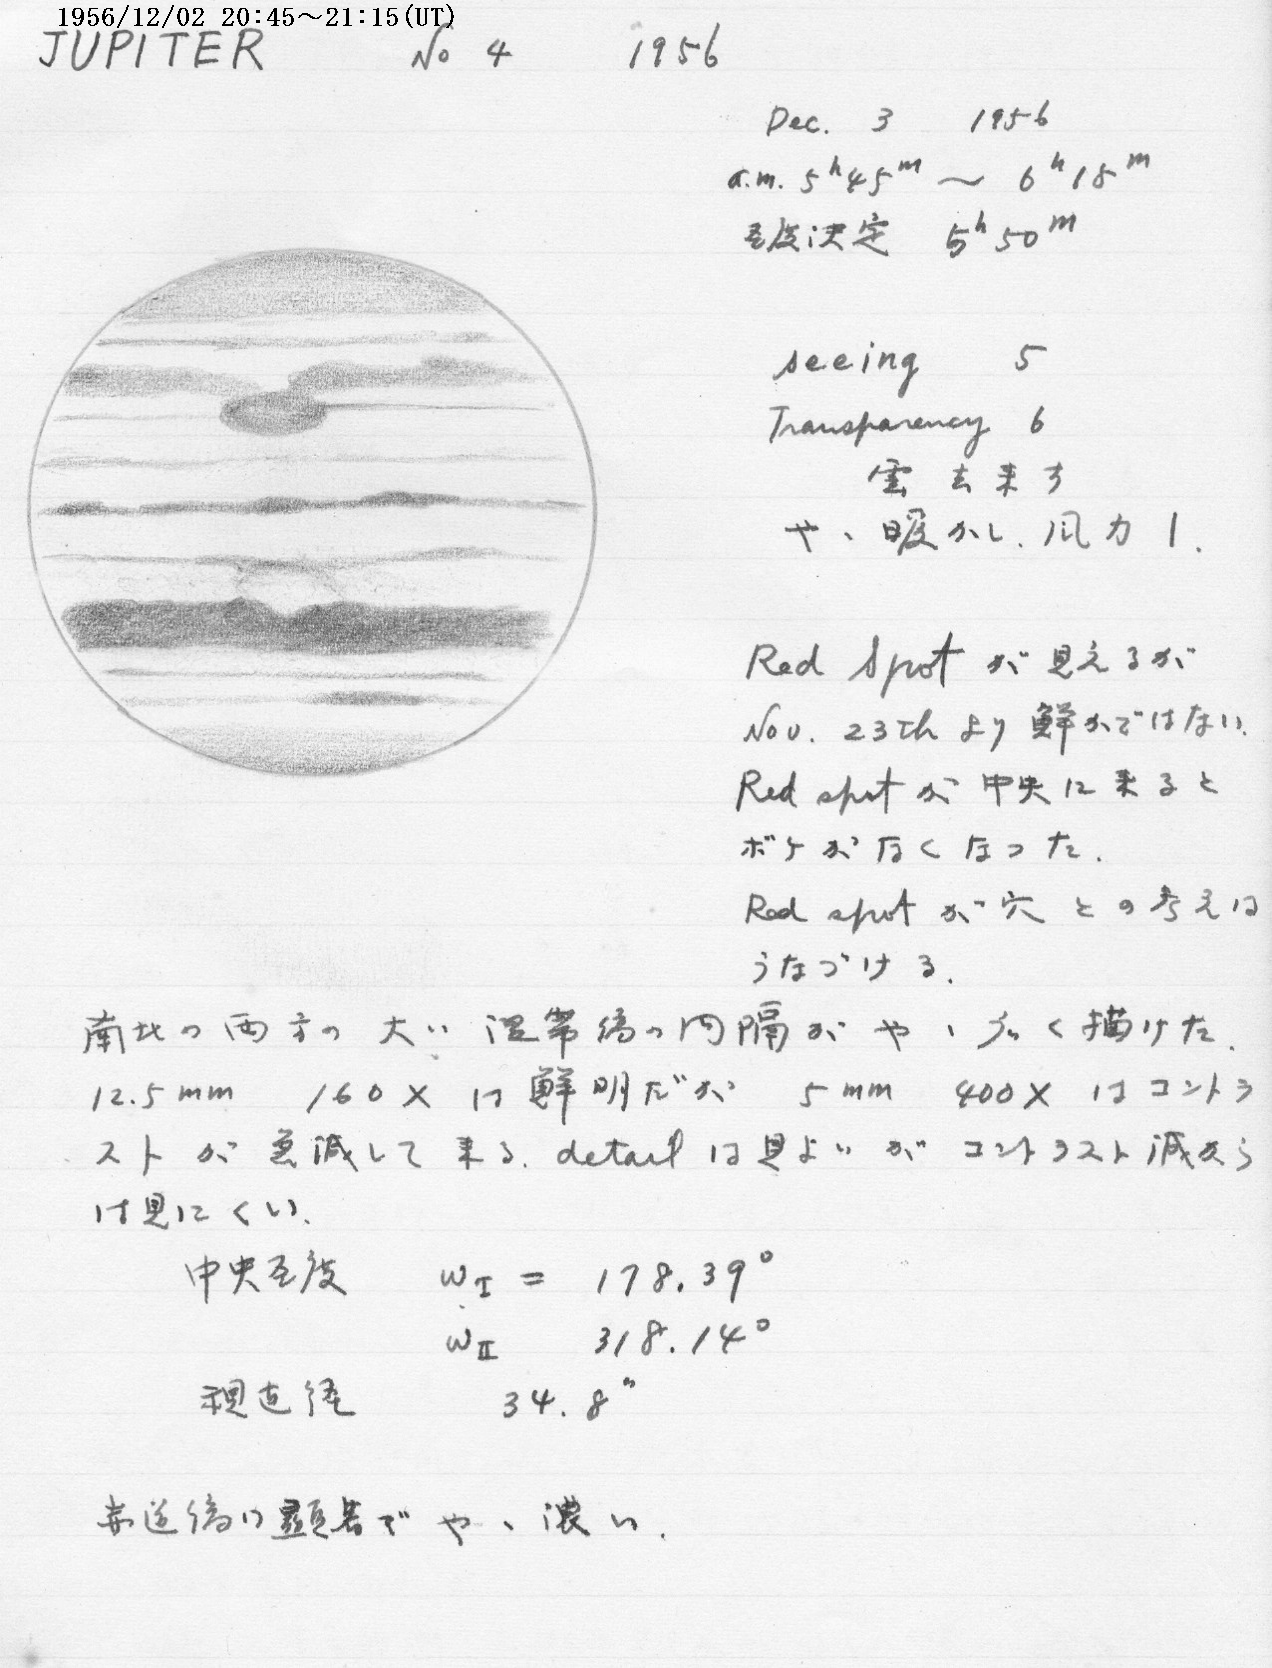 1956/12/02 20:45～21:15(UT)
JUPITER No 4 1956
Dec. 3 1956
a.m. 5h45m ～ 6h15m
至度決定 5h50m
seeing 5
Transparency 6
雲去来す
やゝ暖かし、風力1.
Red Spot が見えるが
Nov. 23th より鮮かではない.
Red spot が中央に来ると
ボケがなくなった.
Red spot が穴との考えは
うなづける.
南北の両方の太い温帯縞の間隔がやゝ 描けた.
12.5mm 160X は鮮明だが 5mm 400X はコントラ
ストが急減して来る. detail は見よいがコントラスト減から
は見にくい.
中央至度 ωI = 178.39°
ωII 318.14°
視直径 34.8"
赤道縞は顕著でやゝ濃い.